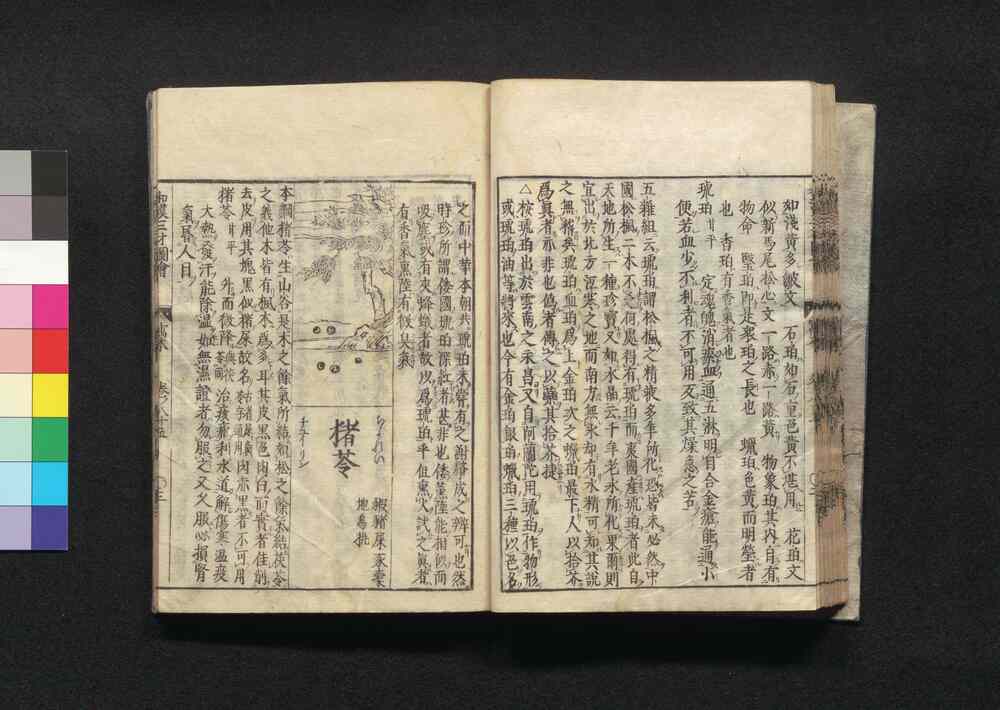 如淺黃多皺文　石珀如石重色黃不堪用　花珀文
似新馬尾松心文一路赤一路黃　物象珀其内自有
物命　瑿珀即是衆珀之長也　蠟珀色黃而明瑩者
也　香珀有香氣者也
琥珀甘平　定魂魄消瘀血通五淋明目合金瘡能通小
便若血少不利者不可用反致其燥急之苦
五雜組云琥珀謂松楓之精液多年所化恐皆未必然中
國松楓二木不乏何處得有琥珀而東國產琥珀者此自
天地所生一種珍寶又如水晶云千年老氷所化果爾則
宜出於北方冱寒之地而南方無氷却有水精可知其說
之無稽矣琥珀血珀爲上金珀次之蠟珀最下人以拾芥
爲眞者亦非也僞者傳之以藥其拾芥捷
△按琥珀出於雲南之永昌又自阿蘭陀用琥珀作物形
或琥珀油等將來也今有金珀銀珀蠟珀三種以色名
之而中華本朝共琥珀未嘗有之謝肇淛之辨可也然
時珍所謂倭國琥珀深紅者甚非也倭薰陸能相似而
有香氣黒陸有微臭氣
猪苓
ちよれい
チュイリン
豭猪屎　豕橐
地烏桃
本綱猪苓生山谷是木之餘氣所結如松之餘氣結茯苓
之義他木皆有楓木爲多耳其皮黒色肉白而實者佳削
去皮用其塊黒似猪屎故名
猪苓甘平　治痰痢利水道解傷寒温疫
大熱發汗能除湿如無濕證者勿服之又久服必損腎
氣昏人目
和漢三才圖會